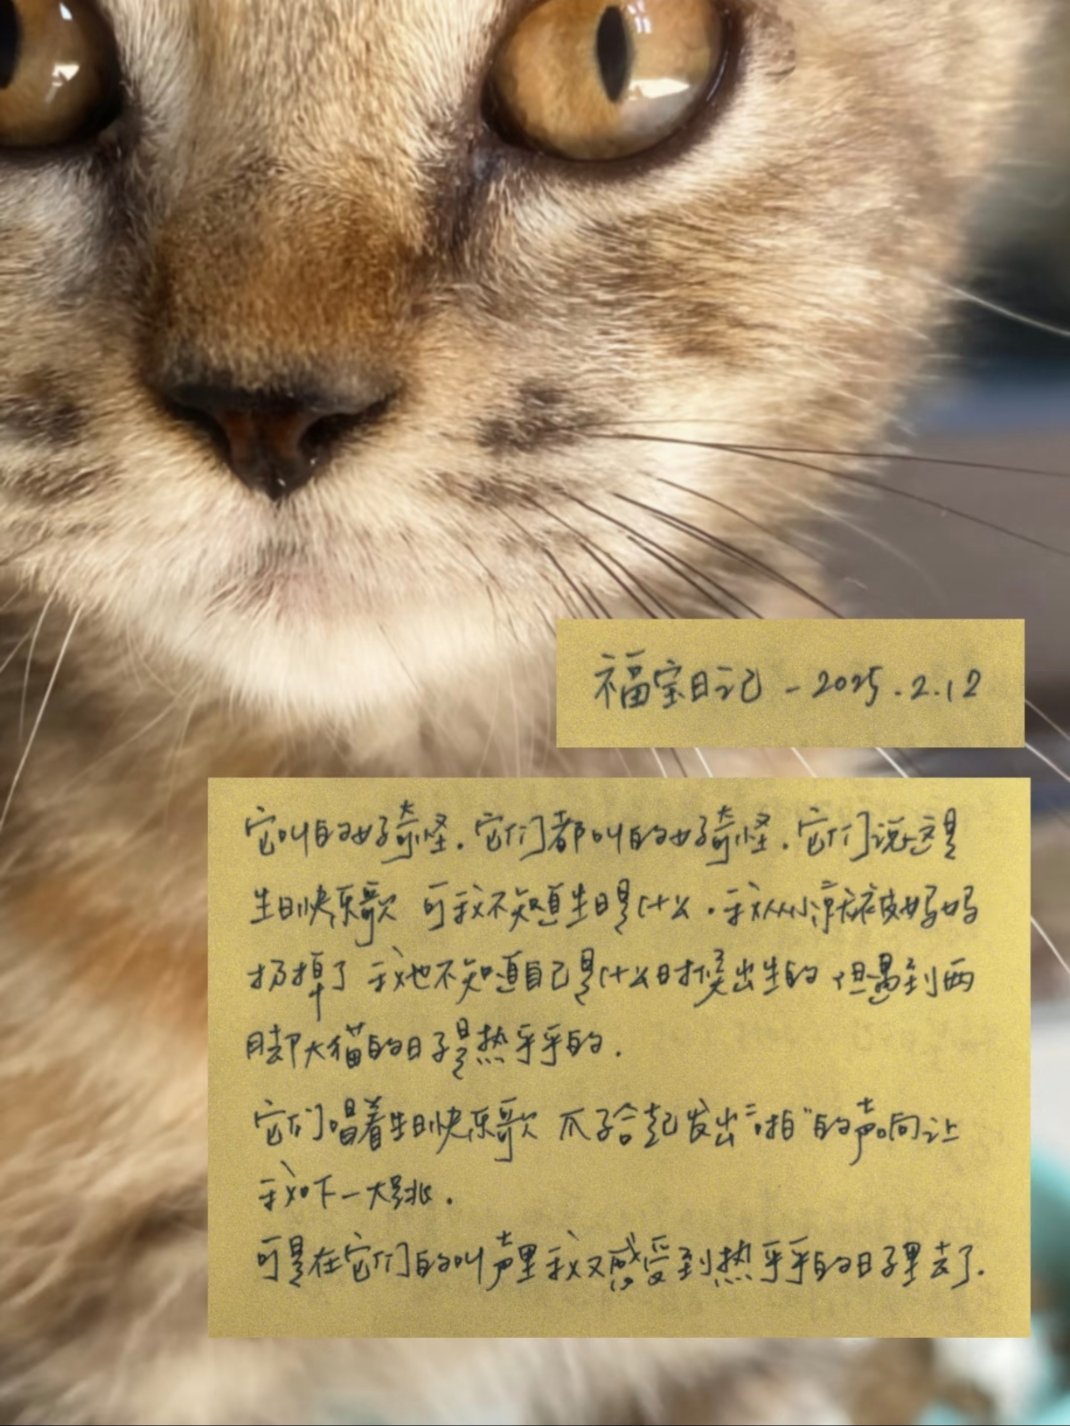 福宝日记 - 2025.2.12
它叫的好奇怪. 它们都叫的好奇怪. 它们说这是
生日快乐歌 可我不知道生日是什么. 我从小就被妈妈
扔掉了 我也不知道自己是什么时候出生的 但遇到两
脚大猫的日子是热乎乎的.
它们唱着生日快乐歌 爪子合起发出"啪"的声响让
我吓一大跳.
可是在它们的叫声里我又感受到热乎乎的日子里去了.